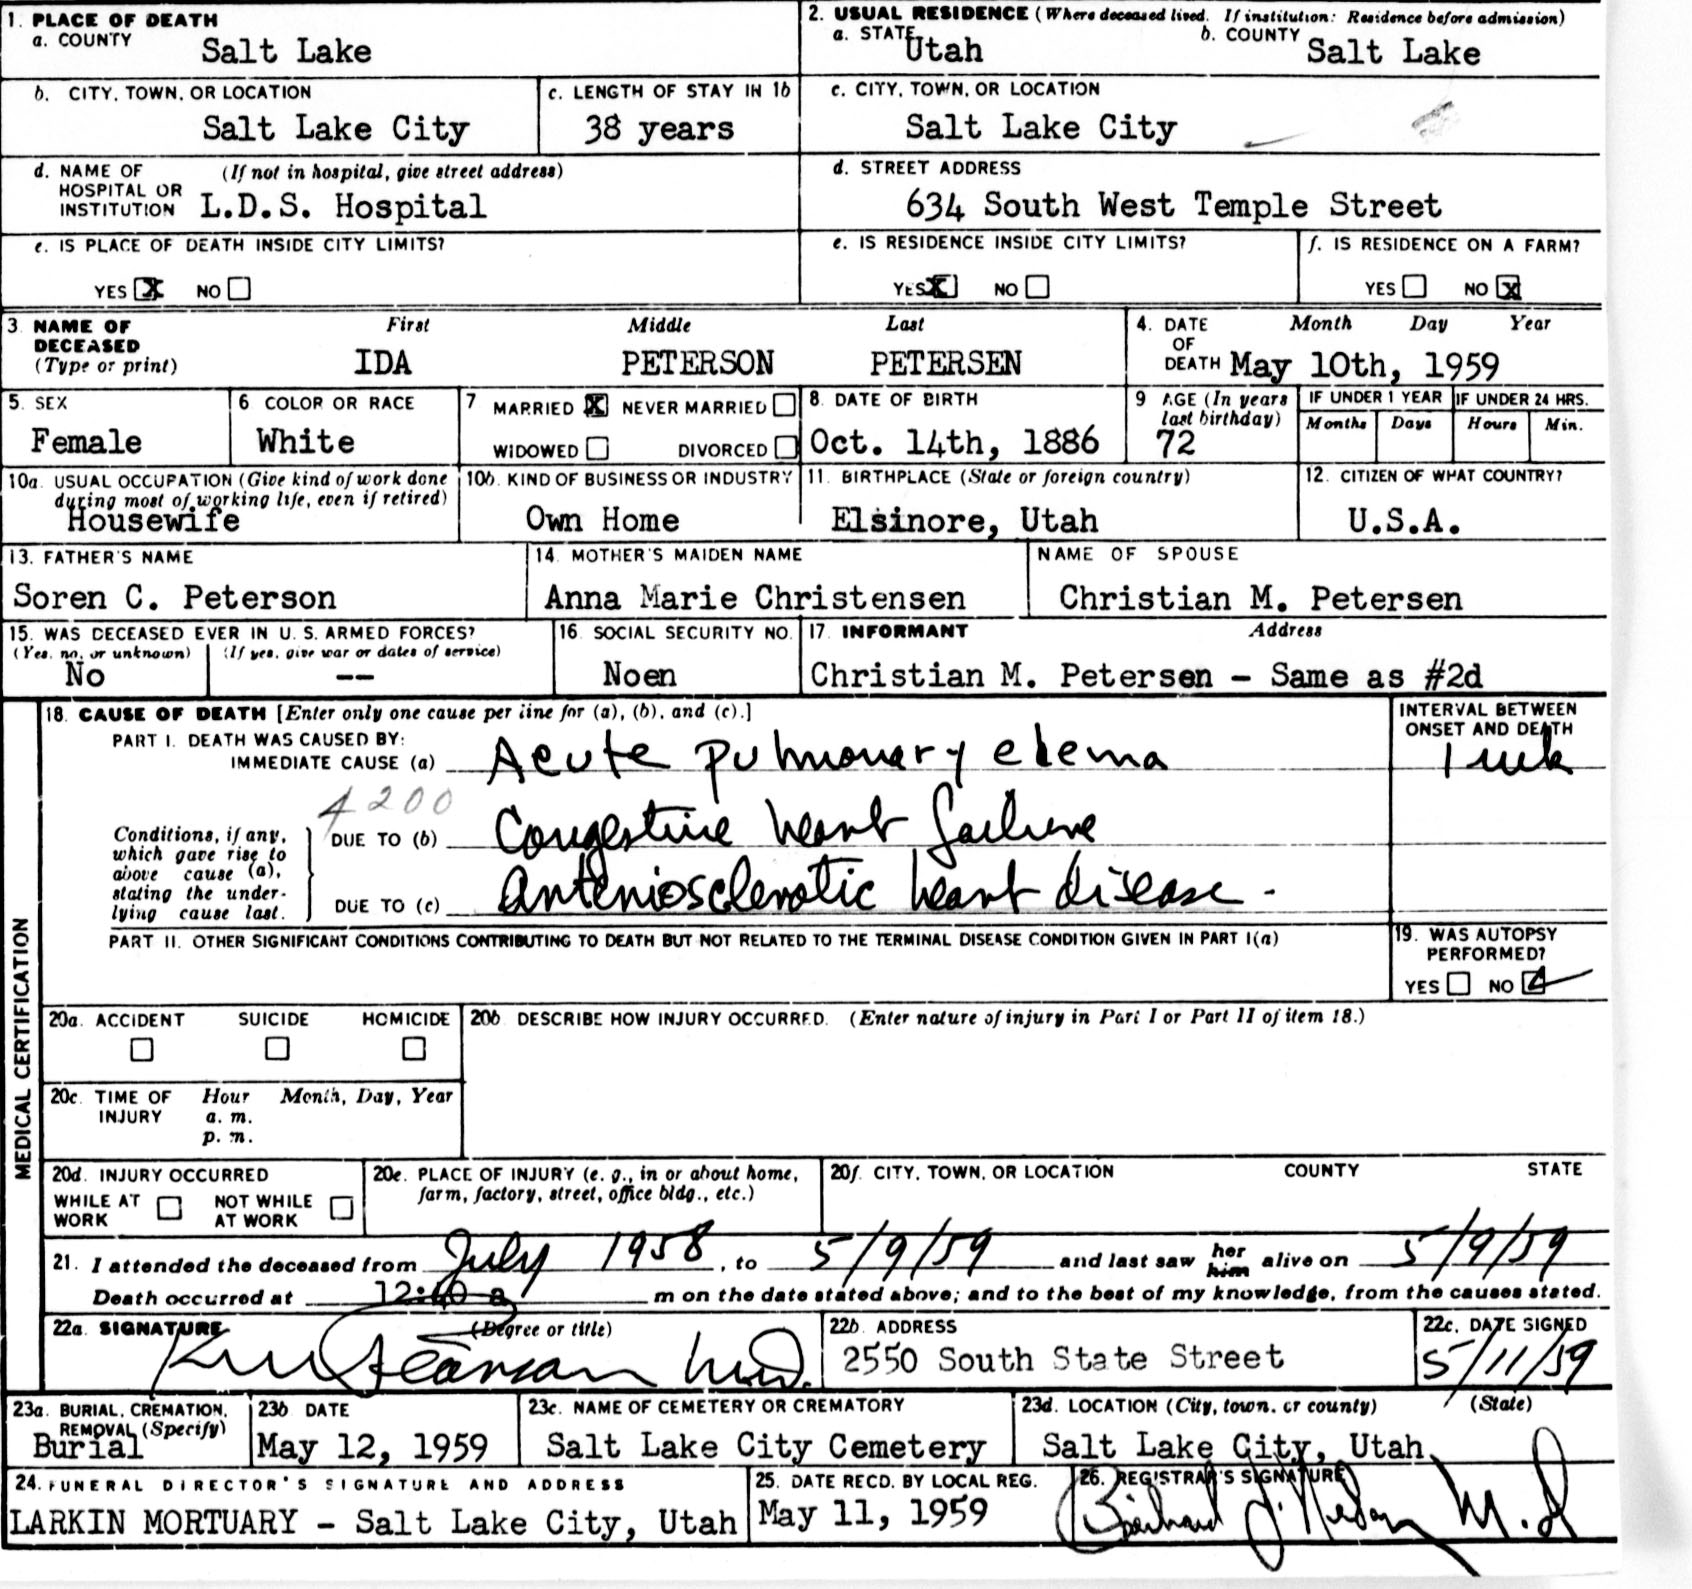 1. PLACE OF DEATH
a. COUNTY Salt Lake
2. USUAL RESIDENCE (Where deceased lived. If institution: Residence before admission)
a. STATE Utah b. COUNTY Salt Lake
b. CITY, TOWN, OR LOCATION Salt Lake City
c. LENGTH OF STAY IN 1b 38 years
c. CITY, TOWN, OR LOCATION Salt Lake City
d. NAME OF HOSPITAL OR INSTITUTION (If not in hospital, give street address) L.D.S. Hospital
d. STREET ADDRESS 634 South West Temple Street
e. IS PLACE OF DEATH INSIDE CITY LIMITS?
YES X NO
e. IS RESIDENCE INSIDE CITY LIMITS?
YES X NO
f. IS RESIDENCE ON A FARM?
YES NO X
3. NAME OF DECEASED (Type or print)
First Middle Last
IDA PETERSON PETERSEN
4. DATE OF DEATH Month Day Year
May 10th, 1959
5. SEX Female
6 COLOR OR RACE White
7 MARRIED X NEVER MARRIED
WIDOWED DIVORCED
8. DATE OF BIRTH Oct. 14th, 1886
9 AGE (In years last birthday) 72
IF UNDER 1 YEAR Months Days
IF UNDER 24 HRS. Hours Min.
10a. USUAL OCCUPATION (Give kind of work done during most of working life, even if retired)
Housewife
10b. KIND OF BUSINESS OR INDUSTRY
Own Home
11. BIRTHPLACE (State or foreign country)
Elsinore, Utah
12. CITIZEN OF WHAT COUNTRY?
U.S.A.
13. FATHER'S NAME
Soren C. Peterson
14. MOTHER'S MAIDEN NAME
Anna Marie Christensen
NAME OF SPOUSE
Christian M. Petersen
15. WAS DECEASED EVER IN U. S. ARMED FORCES?
(Yes, no, or unknown) (If yes, give war or dates of service)
No --
16. SOCIAL SECURITY NO.
Noen
17. INFORMANT Address
Christian M. Petersen - Same as #2d
MEDICAL CERTIFICATION
18. CAUSE OF DEATH [Enter only one cause per line for (a), (b), and (c).]
INTERVAL BETWEEN ONSET AND DEATH
PART I. DEATH WAS CAUSED BY:
IMMEDIATE CAUSE (a) Acute pulmonary edema 1 wk
4200
Conditions, if any, which gave rise to above cause (a), stating the underlying cause last.
DUE TO (b) Congestive heart failure
DUE TO (c) Arteriosclerotic heart disease -
PART II. OTHER SIGNIFICANT CONDITIONS CONTRIBUTING TO DEATH BUT NOT RELATED TO THE TERMINAL DISEASE CONDITION GIVEN IN PART I(a)
19. WAS AUTOPSY PERFORMED?
YES NO
20a. ACCIDENT SUICIDE HOMICIDE
20b. DESCRIBE HOW INJURY OCCURRED. (Enter nature of injury in Part I or Part II of item 18.)
20c. TIME OF INJURY Hour Month, Day, Year
a. m.
p. m.
20d. INJURY OCCURRED
WHILE AT WORK NOT WHILE AT WORK
20e. PLACE OF INJURY (e. g., in or about home, farm, factory, street, office bldg., etc.)
20f. CITY, TOWN, OR LOCATION COUNTY STATE
21. I attended the deceased from July 1958, to 5/9/59 and last saw her him alive on 5/9/59
Death occurred at 12:40 a m on the date stated above; and to the best of my knowledge, from the causes stated.
22a. SIGNATURE (Degree or title)
Pearson M.D.
22b. ADDRESS
2550 South State Street
22c. DATE SIGNED
5/11/59
23a. BURIAL, CREMATION, REMOVAL (Specify)
Burial
23b DATE
May 12, 1959
23c. NAME OF CEMETERY OR CREMATORY
Salt Lake City Cemetery
23d. LOCATION (City, town, or county) (State)
Salt Lake City, Utah
24. FUNERAL DIRECTOR'S SIGNATURE AND ADDRESS
LARKIN MORTUARY - Salt Lake City, Utah
25. DATE RECD. BY LOCAL REG.
May 11, 1959
26. REGISTRAR'S SIGNATURE
M.D